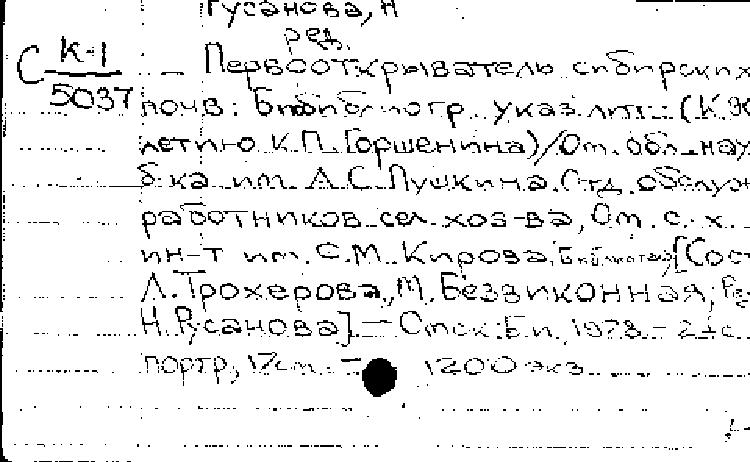 Русанова, Н
ред.
С К-1 Первооткрыватель сибирских
5037 почв: Биобиблиогр. указ. лит.: (К
летию К.П. Горшенина)/Ом. обл. нау
б-ка им. А.С. Пушкина. Отд. обслуж
работников сел. хоз-ва, Ом. с.-х.
ин-т им. С.М. Кирова, [Сост
Л. Трохерова, М. Беззвиконная; Ре
Н. Русанова]. — Омск: Б.и., 1978. - 21 с.
портр, 17см. 1200 экз